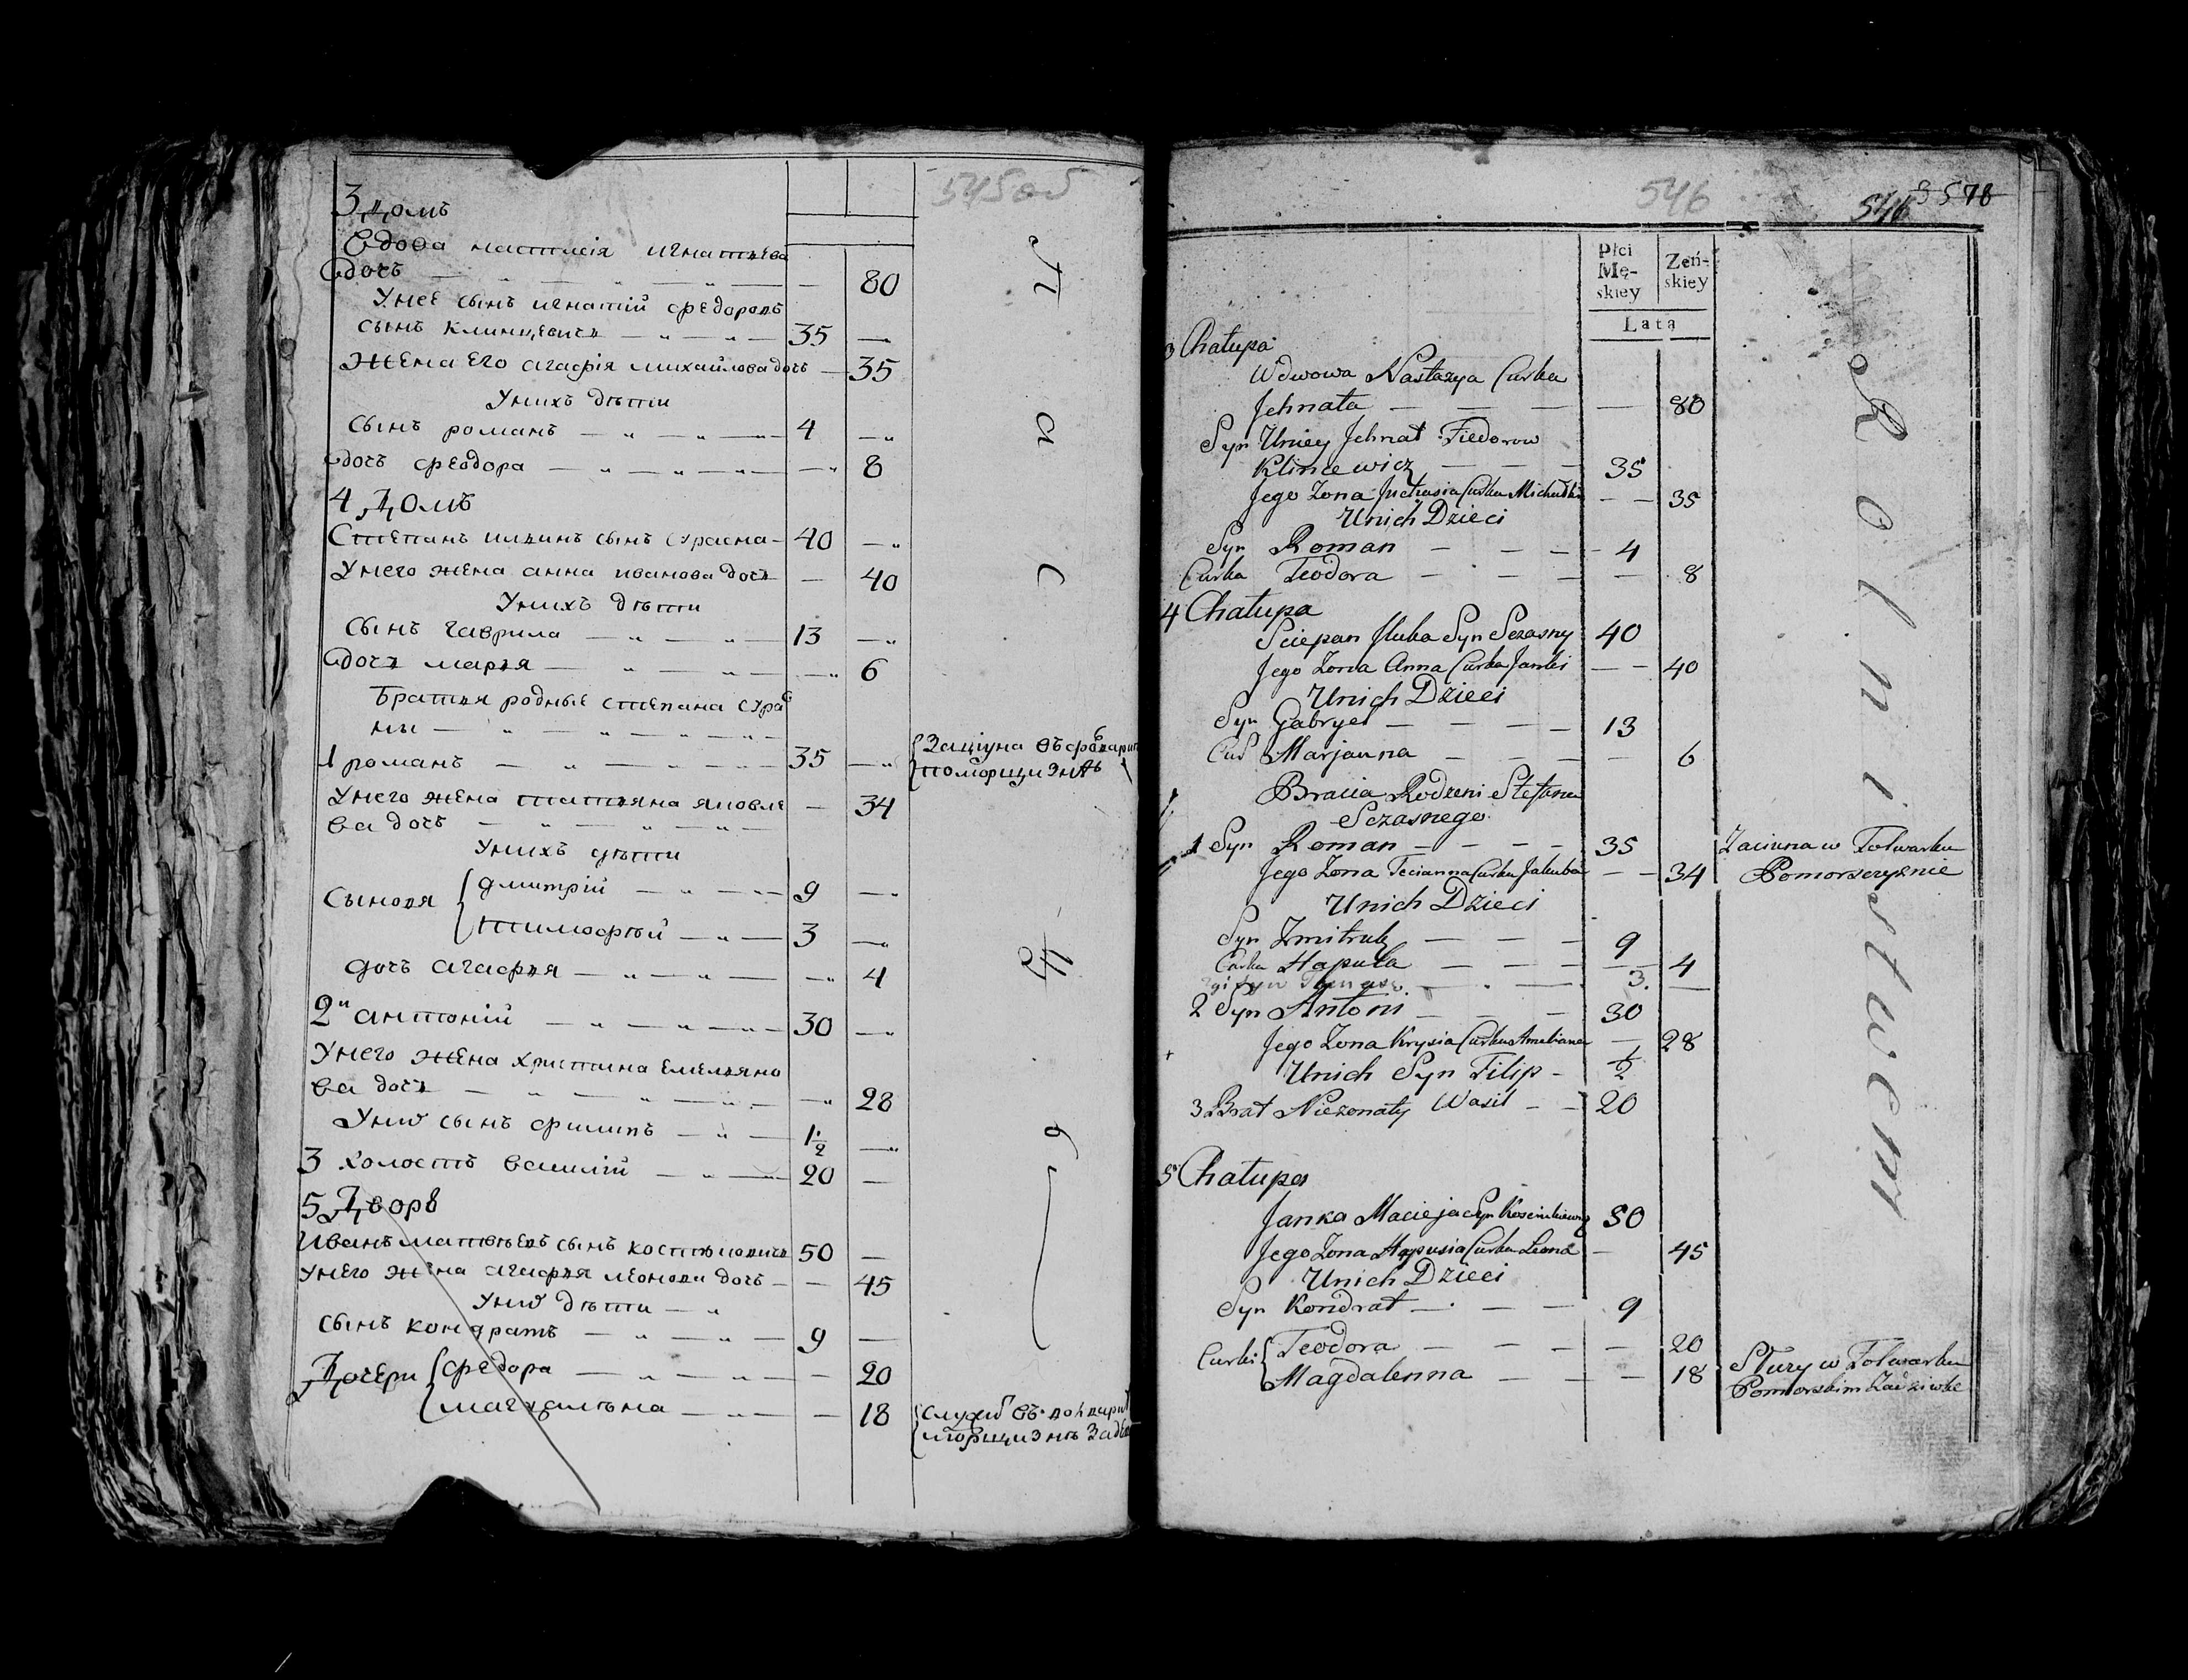 545 об
3 Домъ
Вдова настасія игнатьева
дочъ — 80
У нее сынъ игнатій Ѳедоровъ
сынъ клинцевичъ — 35 —
Жена Его агафія михайлова дочъ — 35
У нихъ дѣти
Сынъ романъ — 4 —
дочъ Ѳеодора — 8
4 Домъ
Степанъ ильинъ сынъ — 40 —
У него жена анна иванова дочъ — 40
У нихъ дѣти
Сынъ гаврила — 13 —
дочъ марья — 6
Братья родные степана
ны —
1 романъ — 35 —
У него жена татьяна яковле — 34
ва дочъ —
У нихъ дѣти
Сыновя { дмитрій — 9 —
тимофѣй — 3 —
дочъ агафья — 4
2й антоній — 30 —
У него жена христина емельяно
ва дочъ — 28
У них сынъ филипъ — 1/2 —
3 холостъ василій — 20 —
5 Дворъ
Иванъ матвѣевъ сынъ 50 —
У него жена агафья леонова дочъ — 45
У них дѣти —
сынъ кондратъ — 9 —
Дочери { Ѳедора — 20
магдалѣна — 18
546
546 3578
Płci Mę-skiey
Żeń-skiey
Lata
3 Chałupa
Wdwowa Nastazya Curka
Jehnata — 80
Syn Uniey Jehnat Fiedorow
Klincewicz — 35
Jego Zona Curka — 35
Unich Dzieci
Syn Roman — 4
Curka Teodora — 8
4 Chałupa
Sciepan Jluka Syn Sczasny 40
Jego Zona Anna Curka Janki — 40
Unich Dzieci
Syn Gabryel — 13
Cur Marjanna — 6
Bracia Rodzeni Stefana
Sczasnego
1 Syn Roman — 35 Zaciuna w Folwarku
Jego Zona Tecianna Curka Jakuba — 34 Pomorszczyznie
Unich Dzieci
Syn Zmitruk — 9
Curka Hapula — 4
Syn — 3. —
2 Syn Antoni — 30
Jego Zona Krysia Curka — 28
Unich Syn Filip — 1/2
3 Brat Niezonaty Wasil — 20
5 Chałupa
Janka Macieja Syn 50
Jego Zona Hapusia Curka Leona — 45
Unich Dzieci
Syn Kondrat — 9
Curki { Teodora — 20
Magdalenna — 18 Słuzy w Folwarku
Pomorskim
Rolnictwem